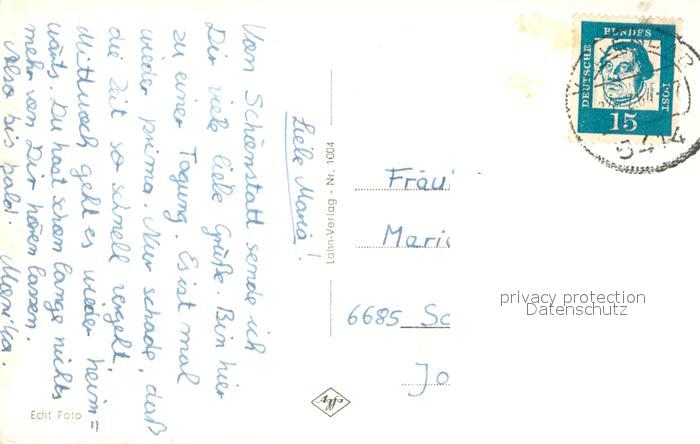 Liebe Maria!
Vom Schönstatt sende ich
Dir viele liebe Grüße. Bin hier
zu einer Tagung. Es ist mal
wieder prima. Nur schade, daß
die Zeit so schnell vergeht.
Mittwoch geht es wieder heim=
wärts. Du hast schon lange nichts
mehr von Dir hören lassen.
Also bis bald! Monika.
Echt Foto
Lahn-Verlag - Nr. 1004
DEUTSCHE BUNDES POST
15
5414
Fräu
Maria
6685 Sc
Jo
privacy protection
Datenschutz